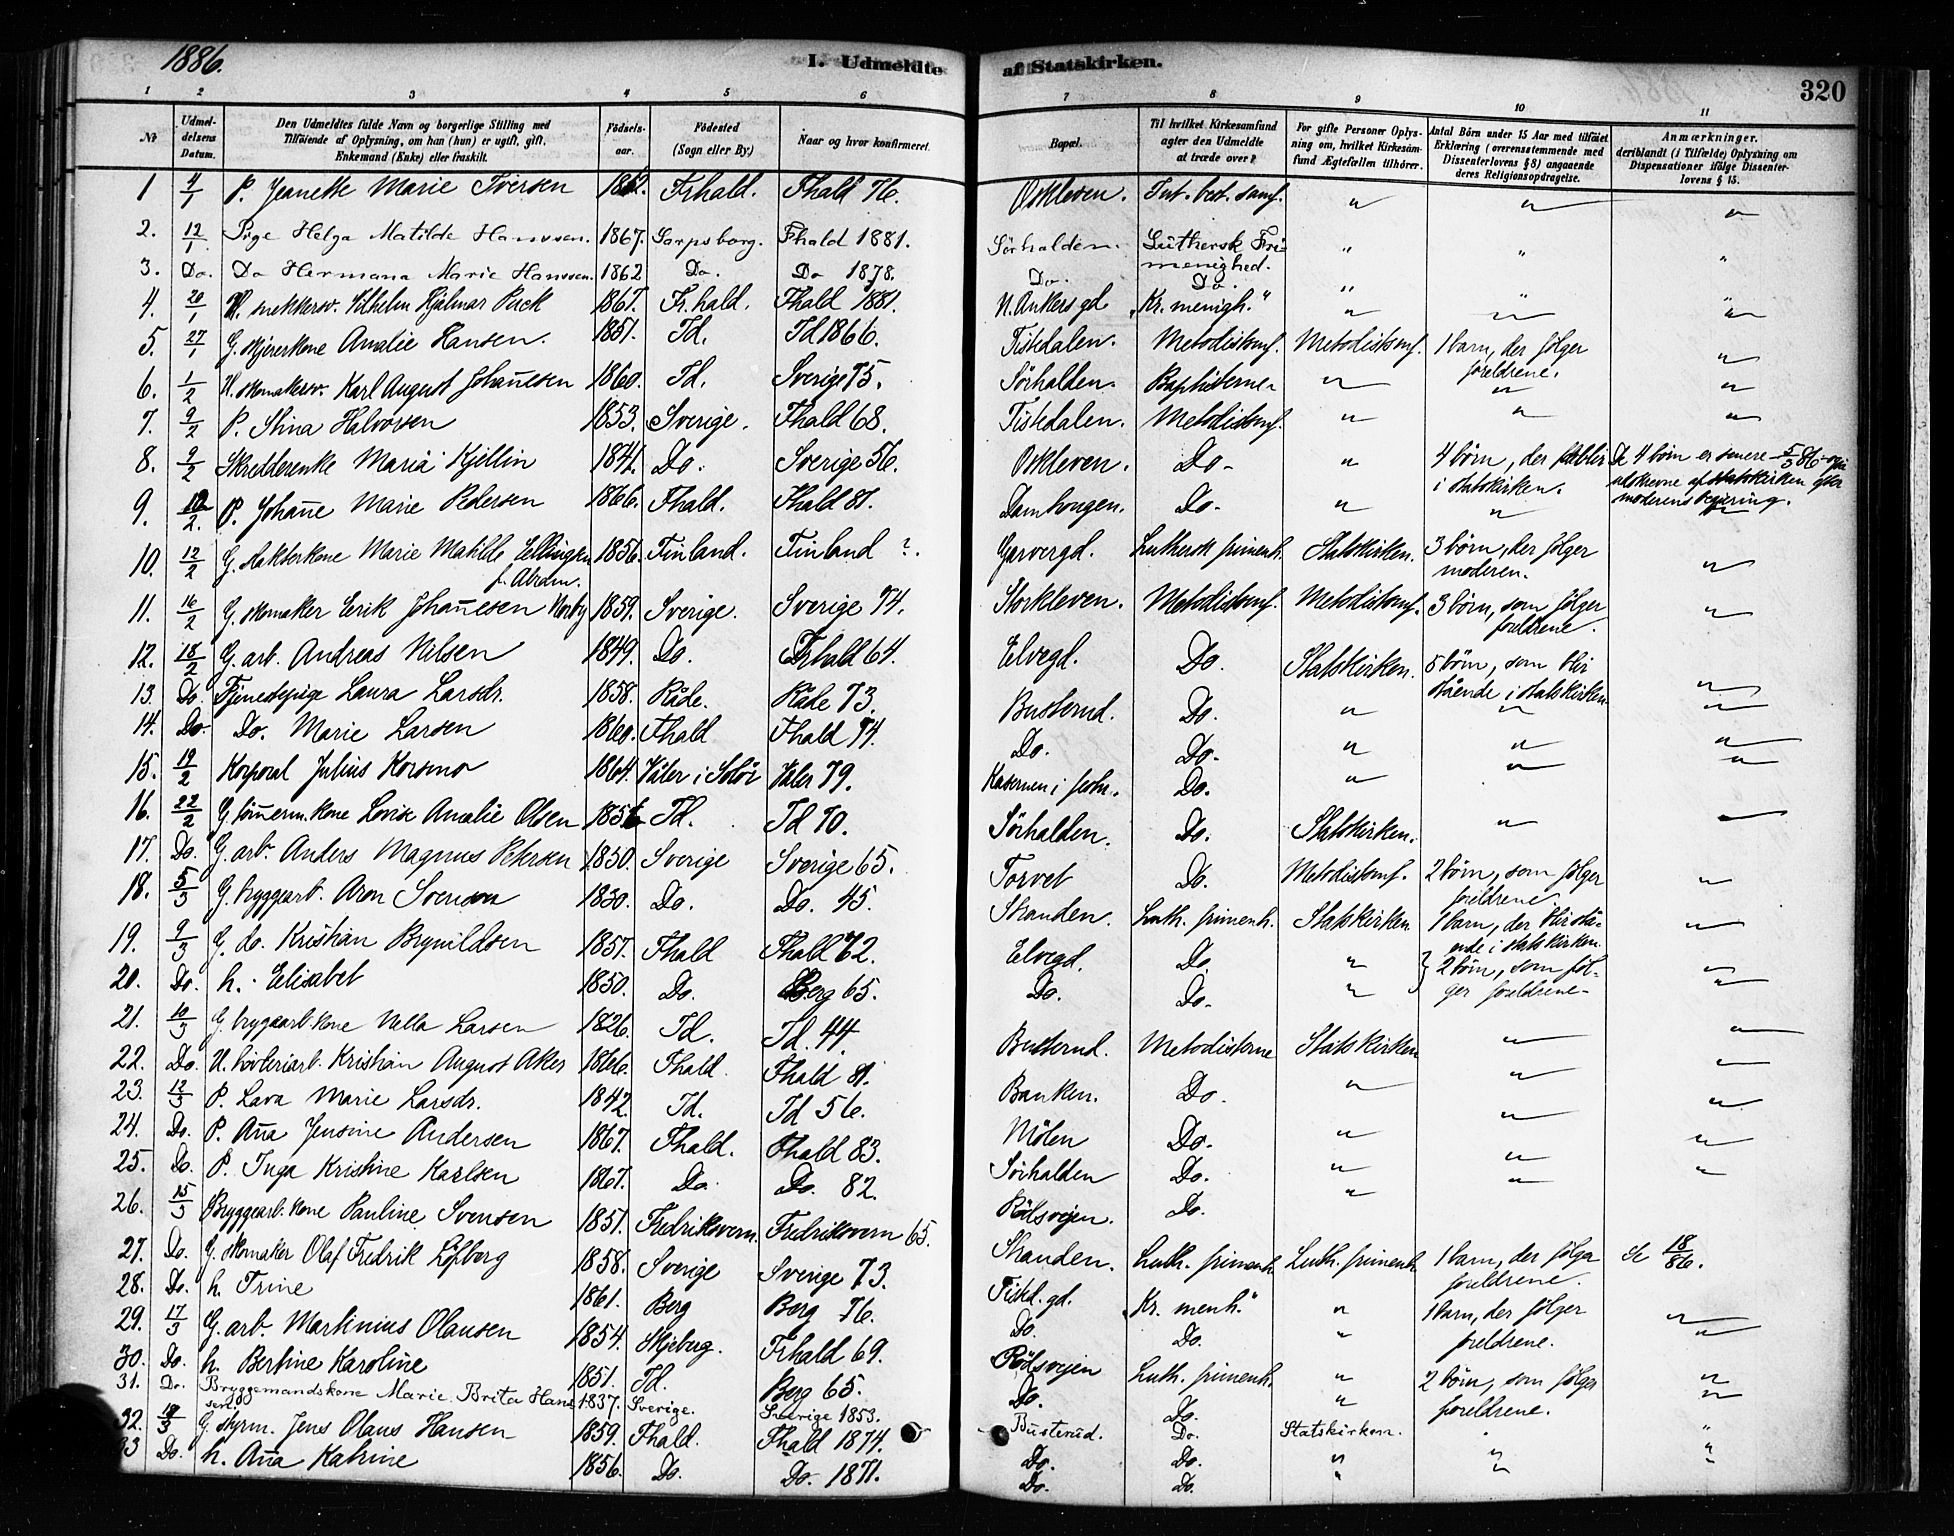 1886.
I. Udmeldte af Statskirken.
320
1 2 3 4 5 6 7 8 9 10 11
№
Udmeldelsens Datum.
Den Udmeldtes fulde Navn og borgerlige Stilling med
Tilføiende af Oplysning, om han (hun) er ugift, gift,
Enkemand (Enke) eller fraskilt.
Fødselsaar.
Fødested
(Sogn eller By)
Naar og hvor konfirmeret.
Bopæl.
Til hvilket Kirkesamfund
agter den Udmeldte
at træde over?
For gifte Personer Oplysning om, hvilket Kirkesamfund Ægtefællen tilhører.
Antal Børn under 15 Aar med tilføiet
Erklæring (overensstemmende med
Dissenterlovens § 8) angaaende
deres Religionsopdragelse.
Anmærkninger.
deriblandt (i Tilfælde) Oplysning om
Dispensationer ifølge Dissenterlovens § 15.
1 4/1 P. Jeanette Marie Iversen 1862. Frhald. Fhald 76. Oskleven. " " "
2. 12/1 Pige Helga Matilde Hanssen. 1867. Sarpsborg. Fhald 1881. Sørhalden. Luthersk Frimenighed. " " "
3. Do. Do Hermana Marie Hanssen. 1862 Do. Do 1878. Do. Do. " " "
4. 20/1 U. snekkersv. Vilhelm Hjalmar Puck 1867. Fr.hald. Fhald 1881. N. Ankers gd „Kr. menigh." " " "
5. 27/1 G. skjærerkone Amalie Hansen. 1851. Id. Id 1866. Tistedalen. Metodistsmf. Metodistsmf. 1 barn, der følger foreldrene. "
6. 1/2 U. skomakersv. Karl August Johañesen 1860. Id. Sverige 75. Sørhalden. Baptisterne " " "
7. 9/2 P. Stina Halvorsen 1853. Sverige. Fhald 68. Tistedalen. Metodistsmf. " " "
8. 9/2 Skredderenke Maria Kjellin 1841. Do. Sverige 56. Oskleven. Do. " 4 børn, der forblir i statskirken. De 4 børn er senere 5/3 86 udskrevne af statskirken efter moderens begjæring.
9. 12/2. P. Johañe Marie Pedersen 1866. Fhald. Fhald 81. Damhougen. Do. " " "
10. 12/2 G. slakterkone Marie Matilde Ellingsen 1856. Finland. Finland ?. Garvergd. Luthersk frimenh. Statskirken. 3 børn, der følger moderen. "
11. 16/2 G. skomaker Eerik Johañesen Norby 1859. Sverige. Sverige 74. Storkleven. Metodistsmf. Metodistsmf. 3 børn, som følger foreldrene. "
12. 18/2 G. arb. Andreas Nilsen 1849. Do. Frhald 64. Elvegd. Do. Statskirken. 5 børn, som blir stående i statskirken. "
13. Do. Tjenestepige Laura Larsdr. 1858. Råde. Råde 73. Busterud. Do. " " "
14. Do. Do. Marie Larsen 1860. Fhald Fhald 74. Do. Do. " " "
15. 19/2 Korporal Julius Korsmo 1864. Våler i Solør Våler 79. Kasernen i festn. Do. " " "
16. 22/2 G. tømerm. kone Lovise Amalie Olsen 1856 Id. Id 70. Sørhalden. Do. Statskirken. " "
17. Do. G. arb. Anders Magnus Petersen 1850. Sverige Sverige 65. Torvet Do. Metodistsmf. 2 børn, som følger foreldrene. "
18. 5/3 G. bryggearb. Aron Svenson 1830. Do. Do. 45. Stranden. Luth. frimenh. Statskirken 1 barn, der blir stående i statskirken. "
19. 9/3 G. do. Kristian Brynildsen 1851. Fhald Fhald 72. Elvegd. Do. " 2 børn, som følger foreldrene. "
20. Do. h. Elisabet 1850. Do. Berg 65. Do. Do. " "
21. 10/3 G. bryggearb. kone Nella Larsen 1826. Id. Id. 44. Busterud. Metodisterne Statskirken " "
22. Do. U. høvleriarb. Kristian August Aker 1866. Fhald. Fhald 81. Banken. Do. " " "
23. 12/3 P. Lava Marie Larsdr. 1842 Id. Id 56. Mölen Do. " " "
24. Do. P. Aña Jensine Andersen 1867. Fhald. Fhald 83. Sørhalden Do. " " "
25. Do. P. Inga Kristine Karlsen 1867. Do. Do. 82. Rödsveien. Do. " " "
26. 15/3 Bryggearb. kone Pauline Svensen 1851. Fredriksvern Fredriksvern 65. Stranden. Luth. frimenh. Luth. frimenh. 1 barn, der følger foreldrene. 18/86.
27. Do. G. skomaker Olaf Fredrik Løfberg 1858. Sverige Sverige 73. Tisted. gd. „Kr. menh." " 1 barn, der følger foreldrene. "
28. Do. h. Trine 1861. Berg Berg 76. Do. Do. " "
29. 17/3 G. arb. Martinius Olausen 1854. Skjeberg. Frhald 69. Rødsveien Luth. frimenh. " 2 børn, som følger foreldrene. "
30. Do. h. Bertine Karoline 1851. Id. Berg 65. Do. Do. " "
31. Do. Bryggemandskone Marie Brita Hanssen 1837. Sverige. Sverige 1853. Busterud. Do. Statskirken. " "
32. 19/3 G. styrm. Jens Olaus Hansen 1859. Fhald. Fhald 1874. Do. Do. " " "
33 Do. h. Aña Katrine 1856. Do. Do. 1871. Do. Do. "